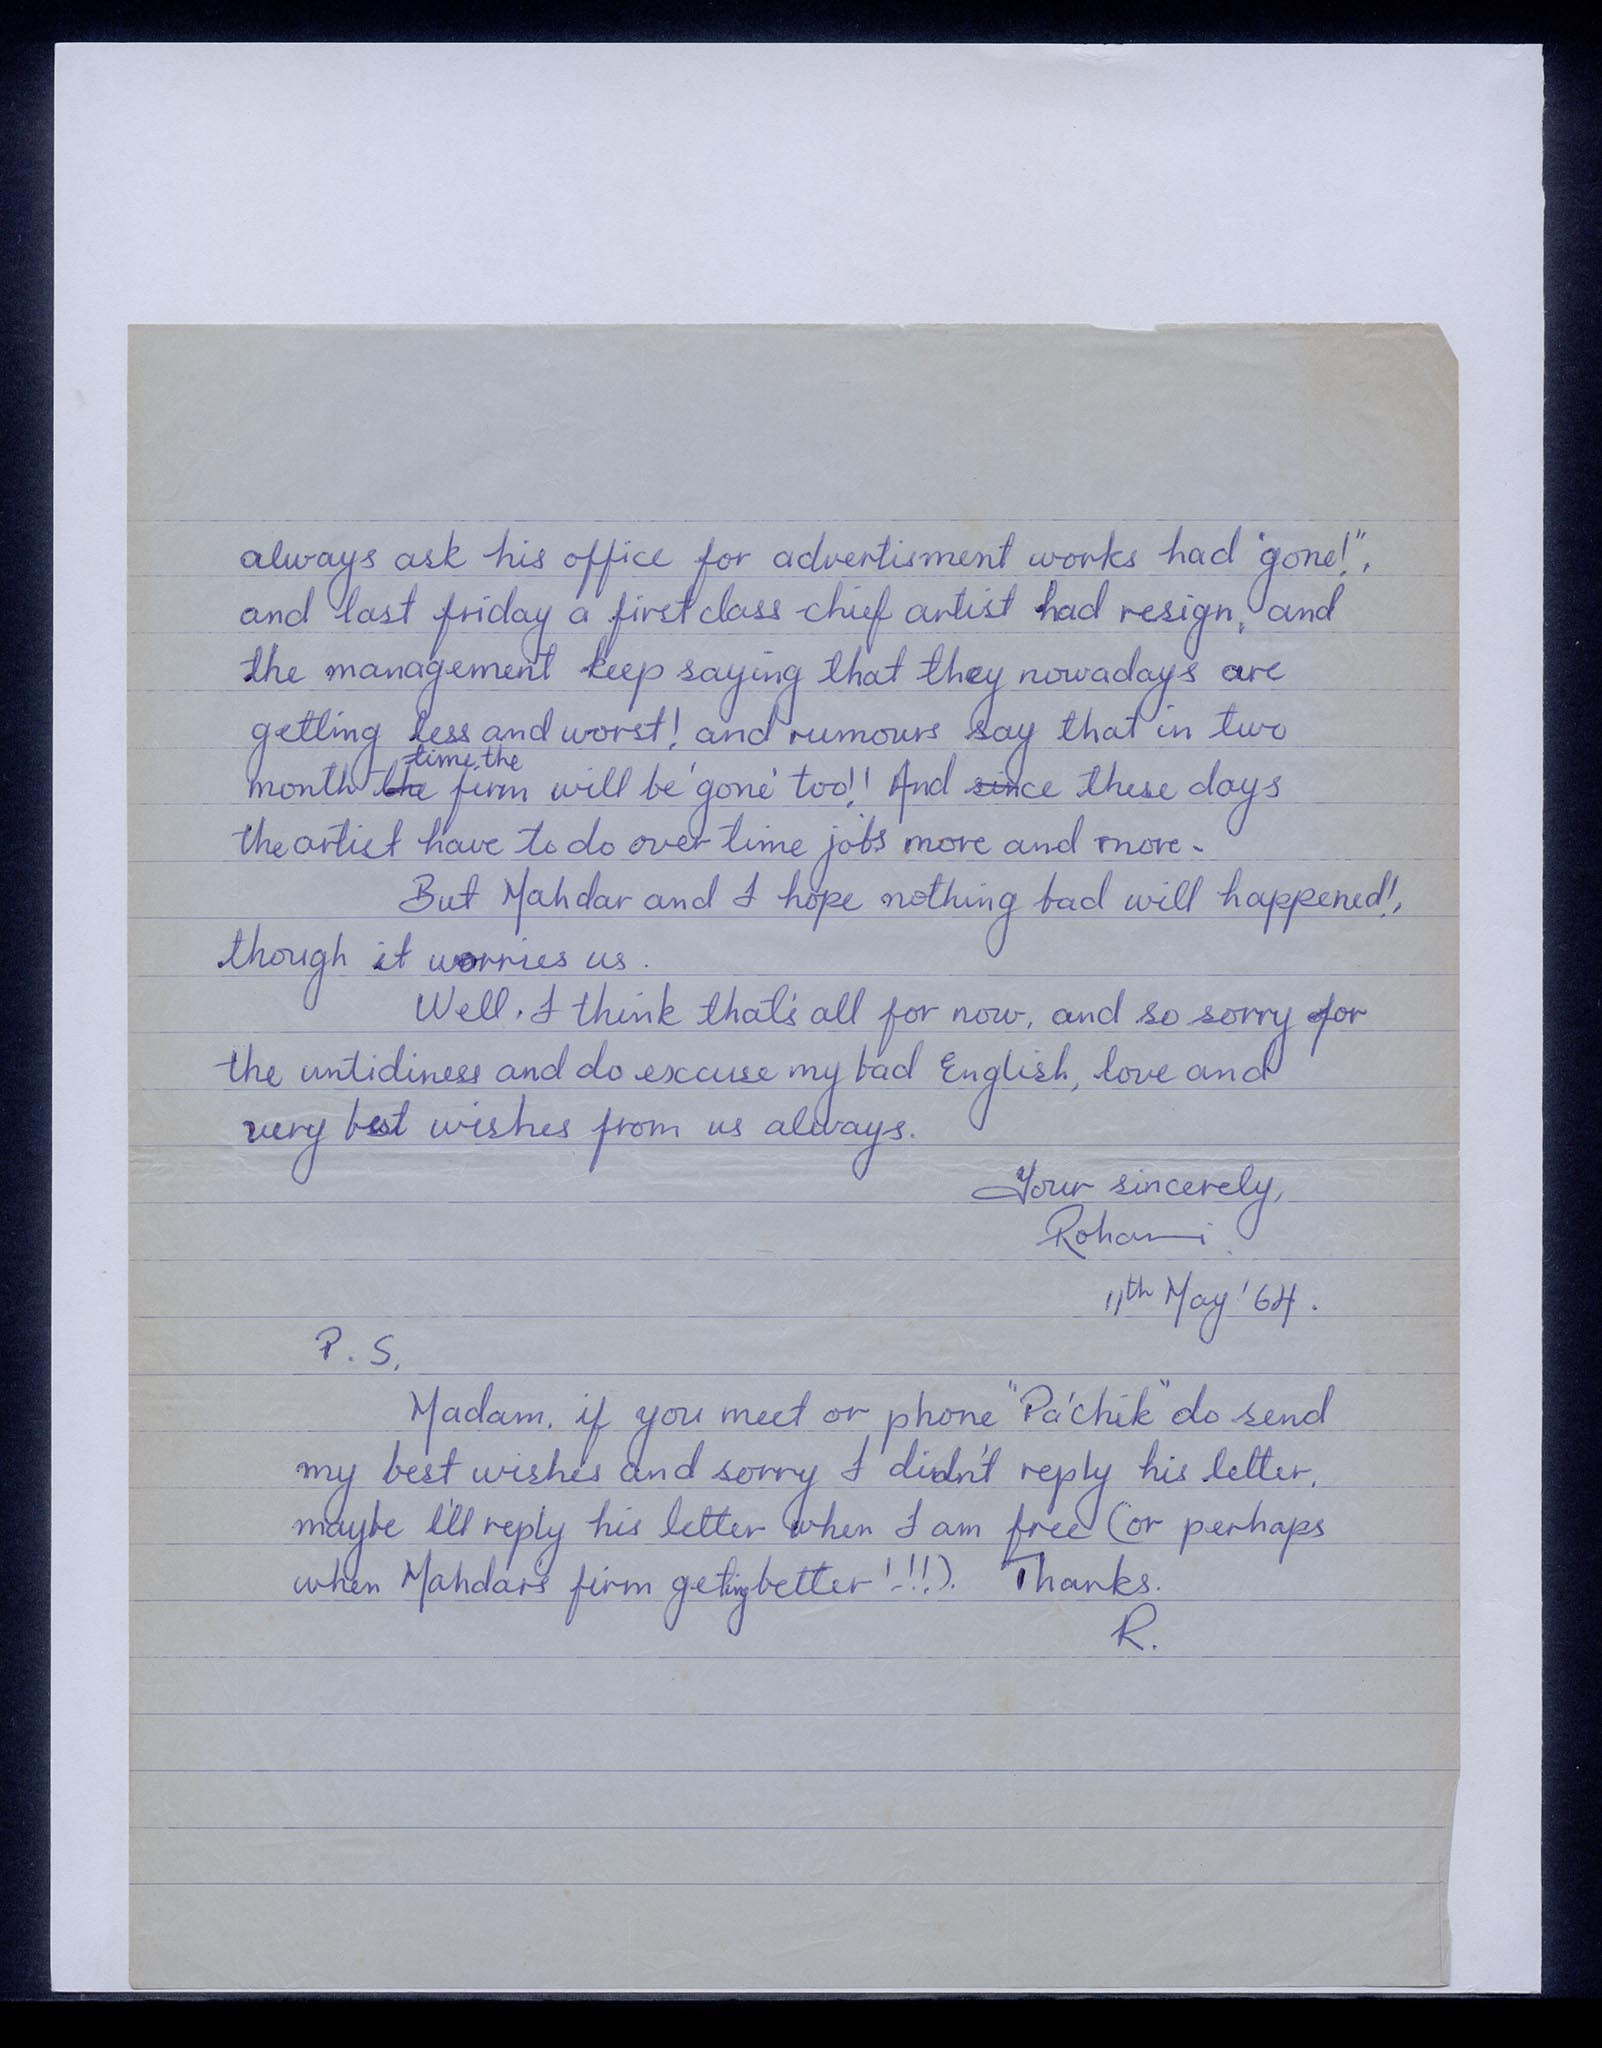 always ask his office for advertisment works had "gone!",
and last friday a first class chief artist had resign, and
the management keep saying that they nowadays are
getting less and worst! and rumours say that in two
time, the
month the firm will be 'gone' too!! And since these days
the artist have to do over time jobs more and more.
But Mahdar and I hope nothing bad will happened!,
though it worries us.
Well, I think that's all for now, and so sorry for
the untidiness and do excuse my bad English, love and
very best wishes from us always.
Your sincerely,
Rohani
11th May '64.
P. S.
Madam, if you meet or phone "Pa'chik" do send
my best wishes and sorry I didn't reply his letter,
maybe I'll reply his letter when I am free (or perhaps
when Mahdar's firm geting better !!!!). Thanks.
R.